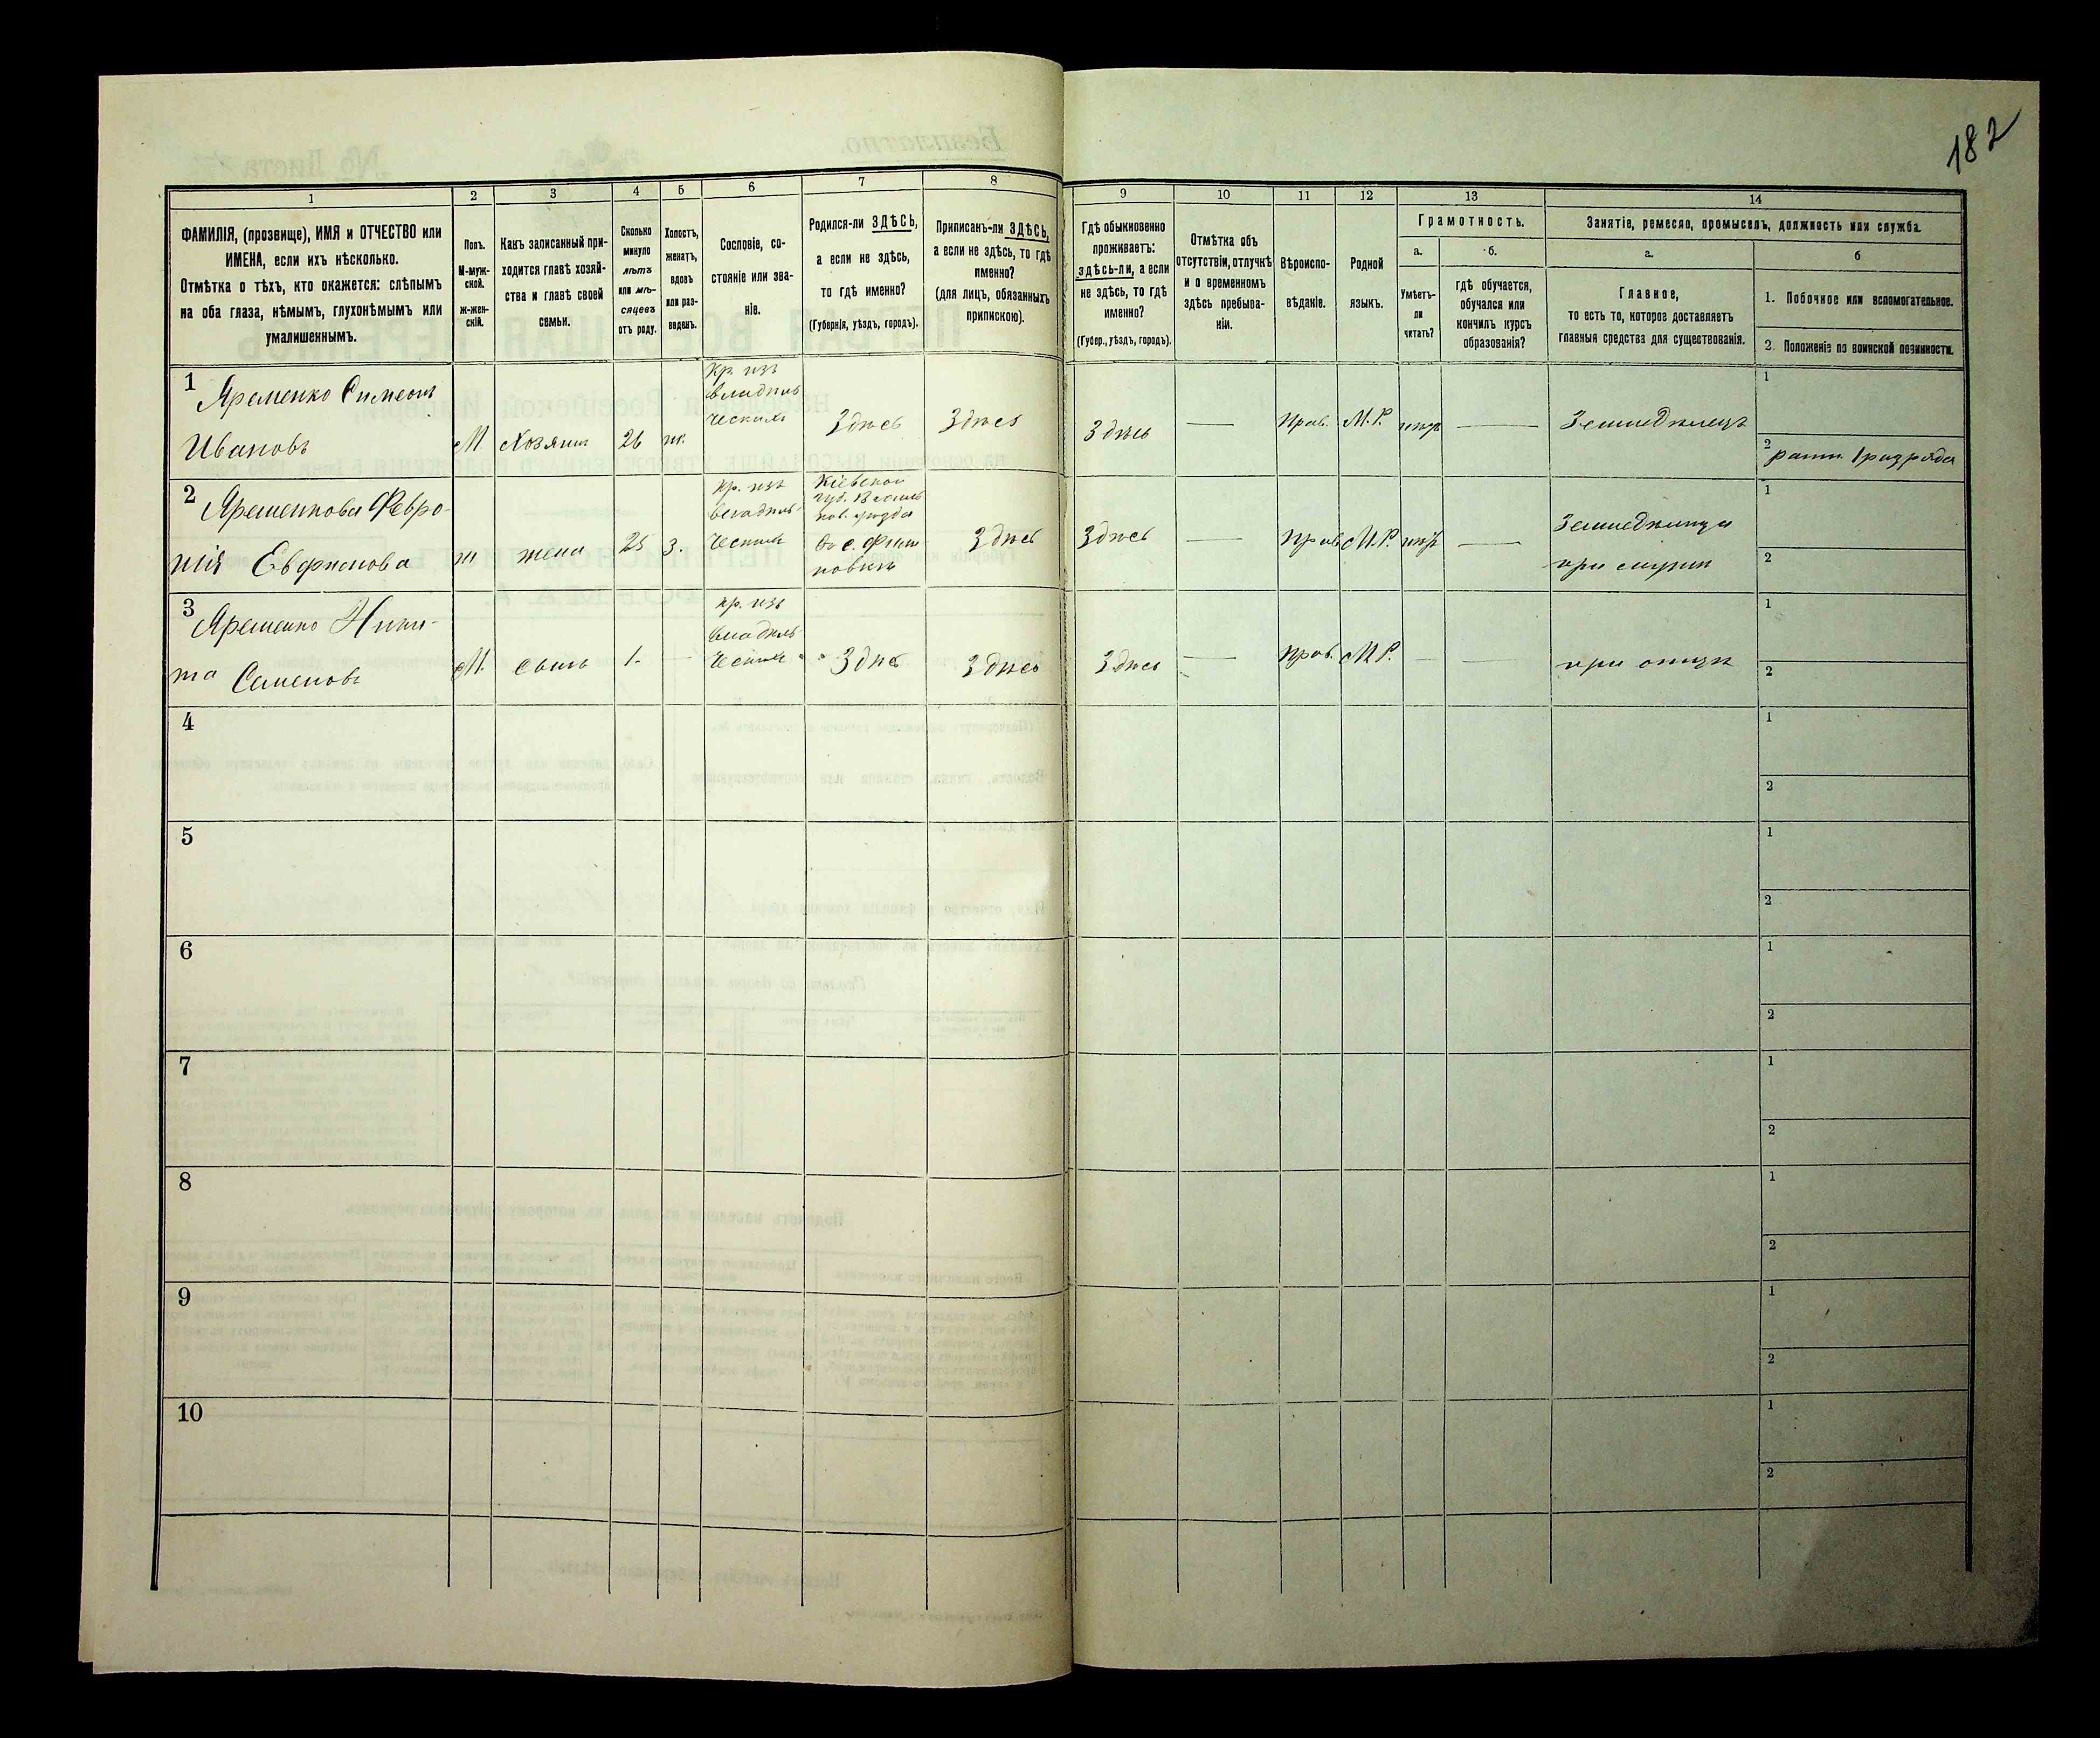 182
1
2
3
4
5
6
7
8
9
10
11
12
13
14
ФАМИЛІЯ, (прозвище), ИМЯ и ОТЧЕСТВО или
ИМЕНА, если ихъ нѣсколько.
Отмѣтка о тѣхъ, кто окажется: слѣпымъ
на оба глаза, нѣмымъ, глухонѣмымъ или
умалишеннымъ.
Полъ.
М-муж-
ской.
ж-жен-
скій.
Какъ записанный при-
ходится главѣ хозяй-
ства и главѣ своей
семьи.
Сколько
минуло
лѣтъ
или мѣ-
сяцевъ
отъ роду.
Холостъ,
женатъ,
вдовъ
или раз-
веденъ.
Сословіе, со-
стояніе или зва-
ніе.
Родился-ли ЗДѢСЬ,
а если не здѣсь,
то гдѣ именно?
(Губернія, уѣздъ, городъ).
Приписанъ-ли ЗДѢСЬ,
а если не здѣсь, то гдѣ
именно?
(для лицъ, обязанныхъ
припискою).
Гдѣ обыкновенно
проживаетъ:
здѣсь-ли, а если
не здѣсь, то гдѣ
именно?
(Губер., уѣздъ, городъ).
Отмѣтка объ
отсутствіи, отлучкѣ
и о временномъ
здѣсь пребыва-
ніи.
Вѣроиспо-
вѣданіе.
Родной
языкъ.
Грамотность.
а.
б.
Умѣетъ-
ли
читать?
гдѣ обучается,
обучался или
кончилъ курсъ
образованія?
Занятіе, ремесло, промыселъ, должность или служба.
а.
б
Главное,
то есть то, которое доставляетъ
главныя средства для существованія.
1. Побочное или вспомогательное.
2. Положеніе по воинской повинности.
1
Яременко Симеонъ
Ивановъ
М
Хозяинъ
26
ж.
кр. изъ
владѣль
ческихъ
Здѣсь
Здѣсь
Здѣсь
—
Прав.
М.Р.
—
Земледѣлецъ
1
2
ратн. 1 разряда
2
Яременкова Февро-
нія Евфимова
ж
жена
25
з.
кр. изъ
владѣль-
ческихъ
Кіевской
губ. Василь
ков. уѣзда
Здѣсь
Здѣсь
—
Прав
М.Р.
—
Земледѣлица
при мужѣ
1
2
3
Яременко Ники-
та Семеновъ
М.
сынъ
1.
—
кр. изъ
владѣль-
ческихъ
Здѣсь
Здѣсь
Здѣсь
—
Прав.
М.Р.
—
—
при отцѣ
1
2
4
1
2
5
1
2
6
1
2
7
1
2
8
1
2
9
1
2
10
1
2